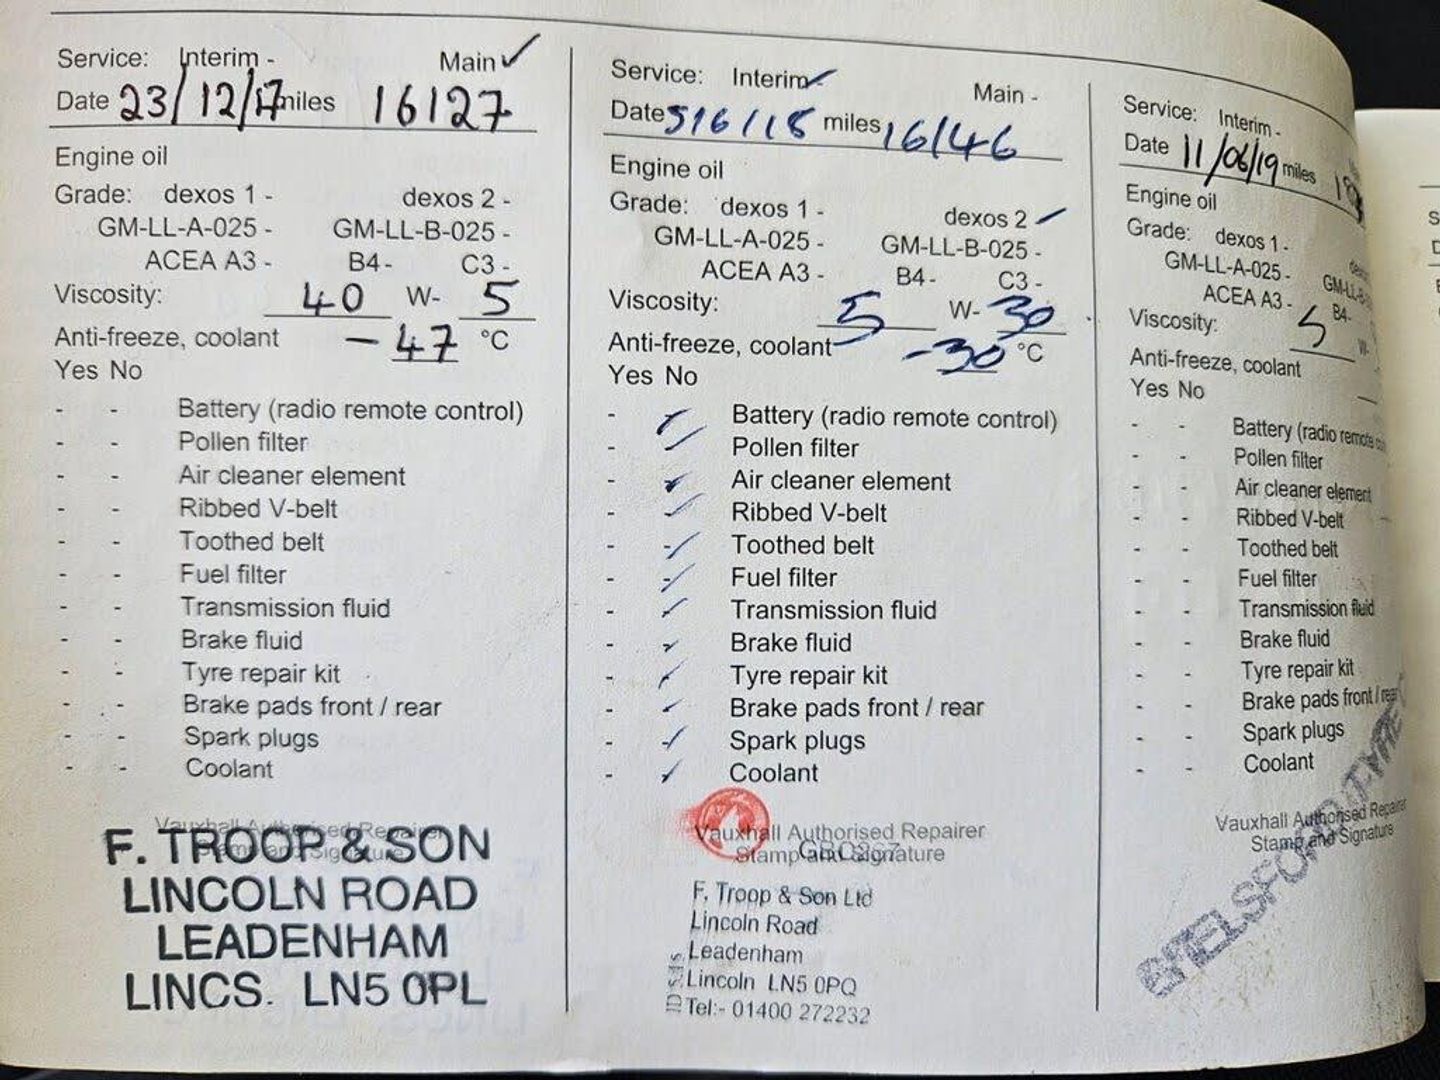 Service: Interim - Main ✓
Date 23/12/17 miles 16127
Engine oil
Grade: dexos 1 - dexos 2 -
GM-LL-A-025 - GM-LL-B-025 -
ACEA A3 - B4 - C3 -
Viscosity: 40 W- 5
Anti-freeze, coolant -47 °C
Yes No
- - Battery (radio remote control)
- - Pollen filter
- - Air cleaner element
- - Ribbed V-belt
- - Toothed belt
- - Fuel filter
- - Transmission fluid
- - Brake fluid
- - Tyre repair kit
- - Brake pads front / rear
- - Spark plugs
- - Coolant
Vauxhall Authorised Repairer
Stamp and Signature
F. TROOP & SON
LINCOLN ROAD
LEADENHAM
LINCS. LN5 0PL
Service: Interim ✓ Main -
Date 5/6/18 miles 16146
Engine oil
Grade: dexos 1 - dexos 2 ✓
GM-LL-A-025 - GM-LL-B-025 -
ACEA A3 - B4 - C3 -
Viscosity: 5 W- 30
Anti-freeze, coolant -30 °C
Yes No
- ✓ Battery (radio remote control)
- ✓ Pollen filter
- ✓ Air cleaner element
- ✓ Ribbed V-belt
- ✓ Toothed belt
- ✓ Fuel filter
- ✓ Transmission fluid
- ✓ Brake fluid
- ✓ Tyre repair kit
- ✓ Brake pads front / rear
- ✓ Spark plugs
- ✓ Coolant
Vauxhall Authorised Repairer
Stamp and Signature
F. Troop & Son Ltd
Lincoln Road
Leadenham
Lincoln LN5 0PQ
Tel:- 01400 272232
Service: Interim -
Date 11/06/19 miles
Engine oil
Grade: dexos 1 -
GM-LL-A-025 -
ACEA A3 - B4-
Viscosity: 5 W-
Anti-freeze, coolant
Yes No
- - Battery (radio remote
- - Pollen filter
- - Air cleaner element
- - Ribbed V-belt
- - Toothed belt
- - Fuel filter
- - Transmission fluid
- - Brake fluid
- - Tyre repair kit
- - Brake pads front / rear
- - Spark plugs
- - Coolant
Vauxhall Authorised Repairer
Stamp and Signature